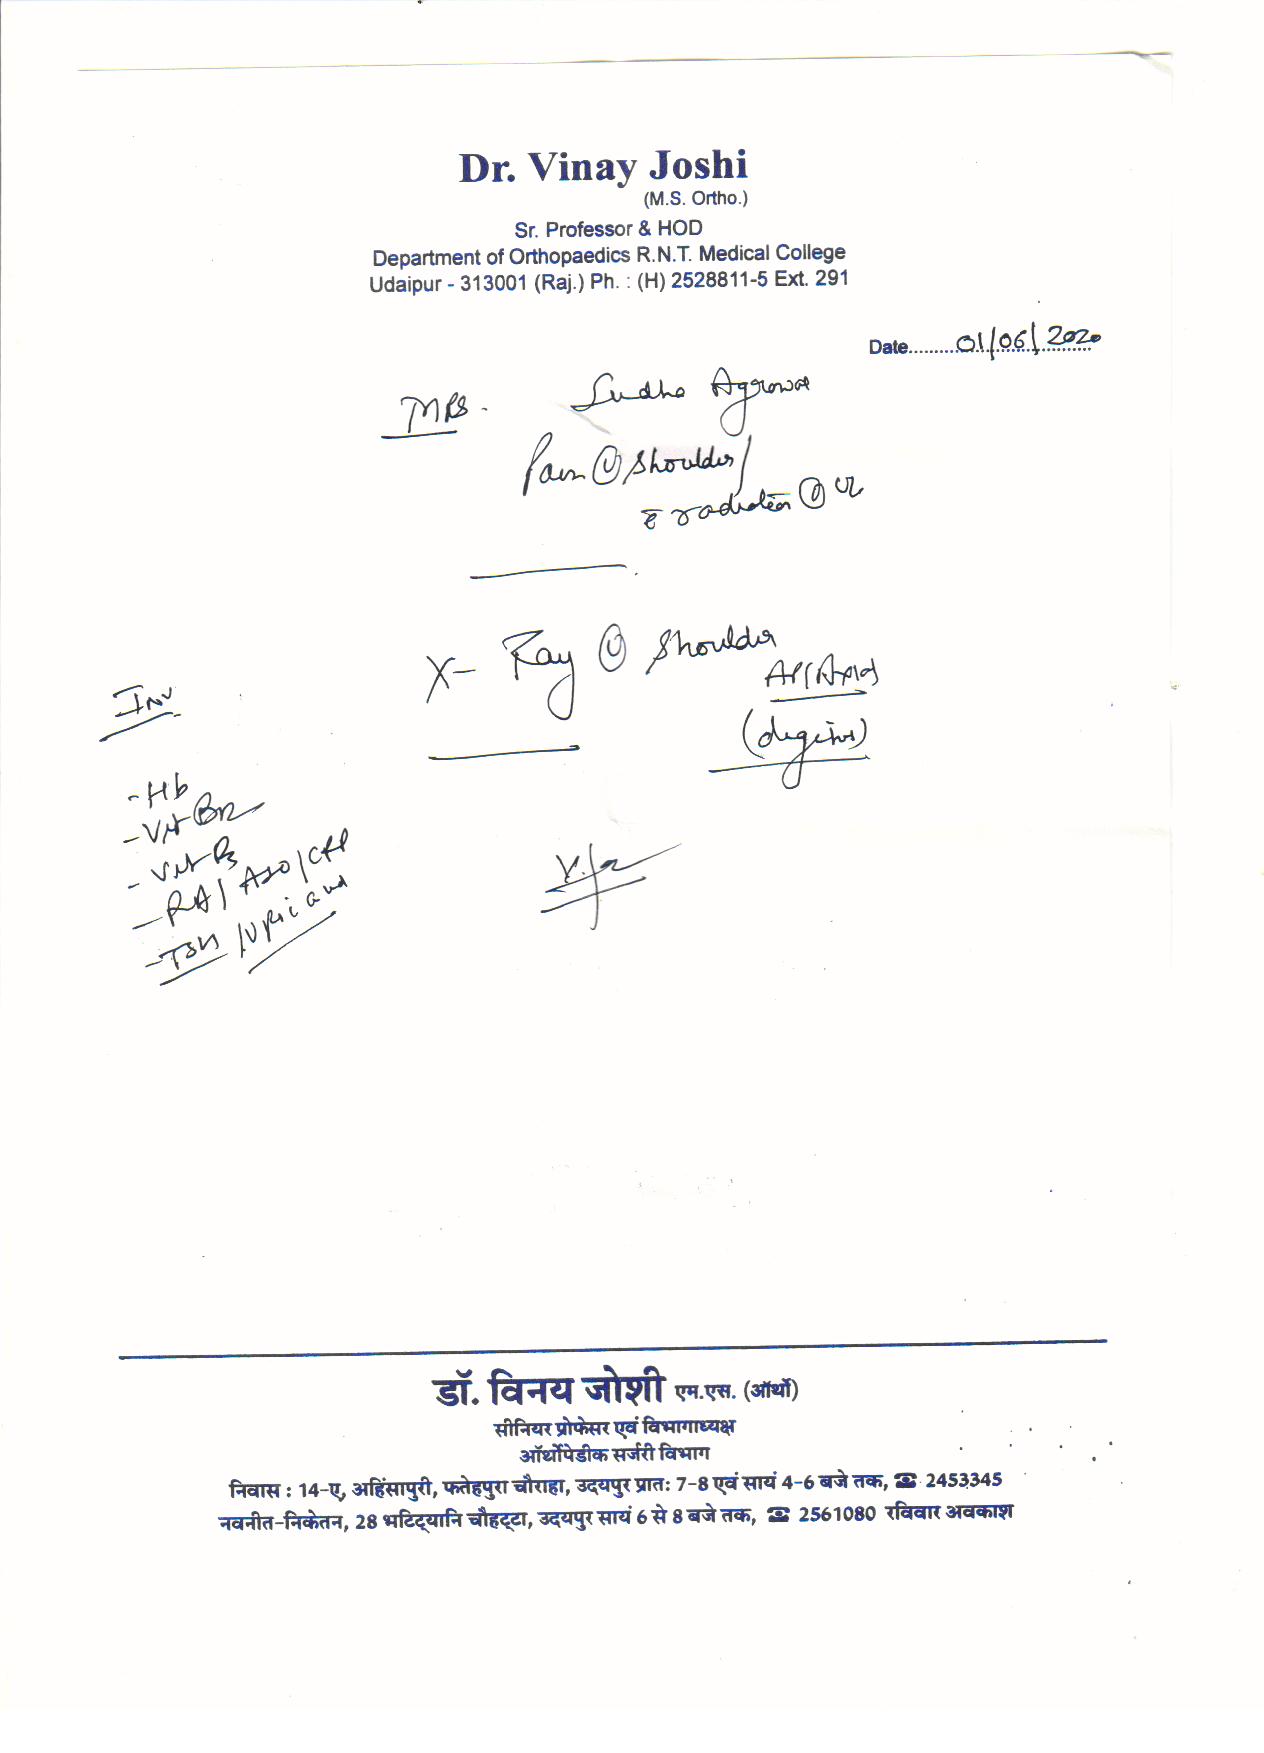 Dr. Vinay Joshi
(M.S. Ortho.)
Sr. Professor & HOD
Department of Orthopaedics R.N.T. Medical College
Udaipur - 313001 (Raj.) Ph. : (H) 2528811-5 Ext. 291
Date.......... 01/06/2020
MRS. Sudha Agrawal
Pain Shoulder
c̄ radiation UL
X-Ray Shoulder
AP/Axial
Inv
- Hb
- Vit B12
- Vit D3
- RA/ASO/CRP
- TSH/Uric acid
डॉ. विनय जोशी एम.एस. (ऑर्थो)
सीनियर प्रोफेसर एवं विभागाध्यक्ष
ऑर्थोपेडीक सर्जरी विभाग
निवास : 14-ए, अहिंसापुरी, फतेहपुरा चौराहा, उदयपुर प्रातः 7-8 एवं सायं 4-6 बजे तक, ☎ 2453345
नवनीत-निकेतन, 28 भटि्यानि चौहट्टा, उदयपुर सायं 6 से 8 बजे तक, ☎ 2561080 रविवार अवकाश